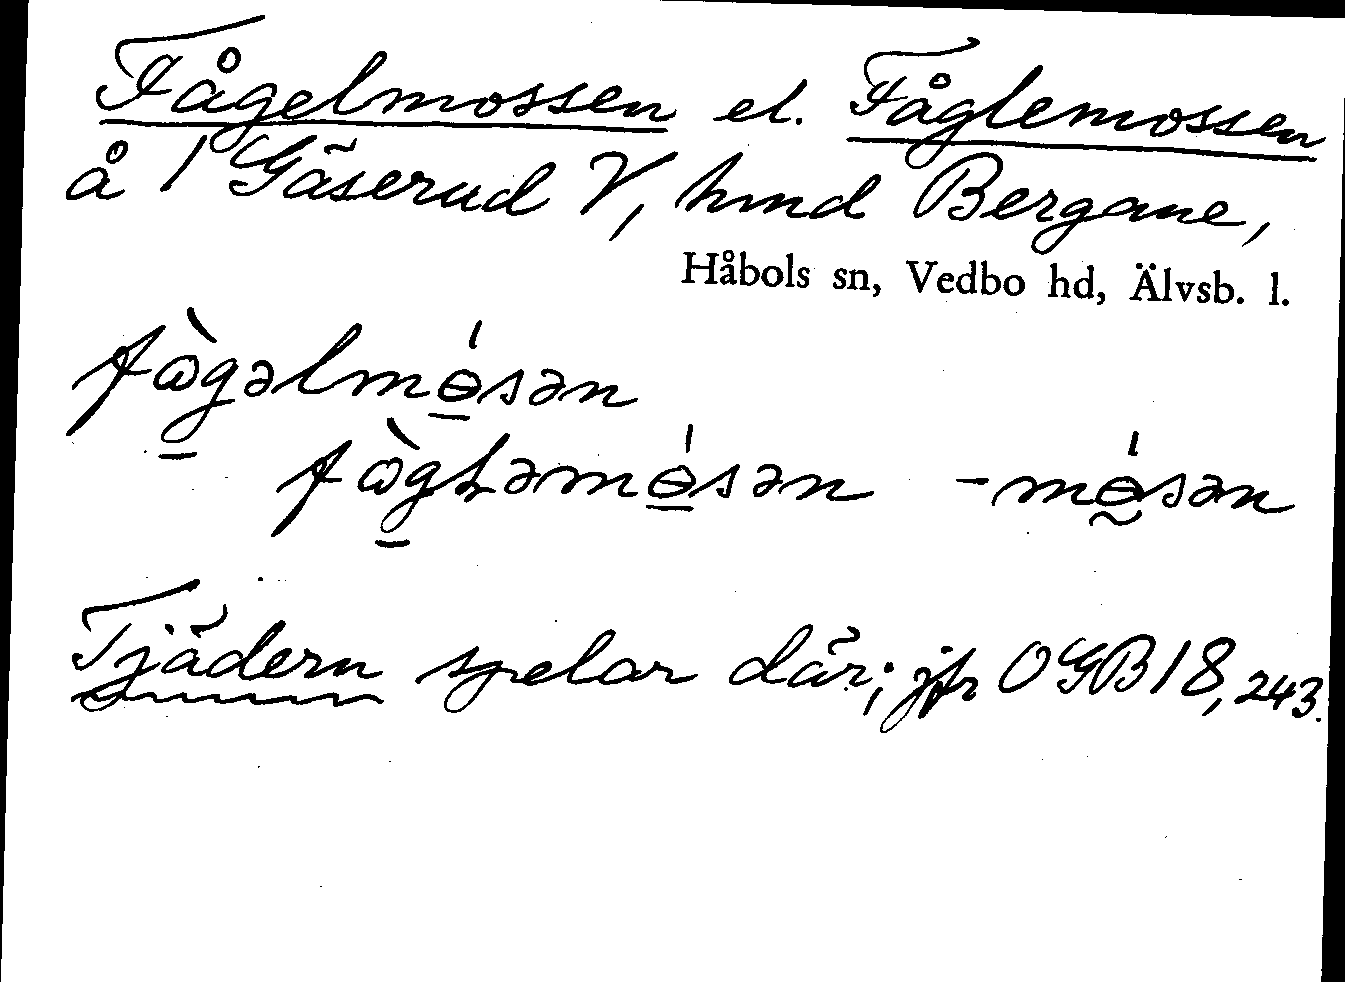 Fågelmossen el. Fåglemossen
å 1 Gäserud V, hmd Bergane,
Håbols sn, Vedbo hd, Älvsb. l.
fὼgəlmɵ́sən
fὼgləmɵ́sən -mɵ́sən
Tjädern spelar där; jfr OGB 18, 243.